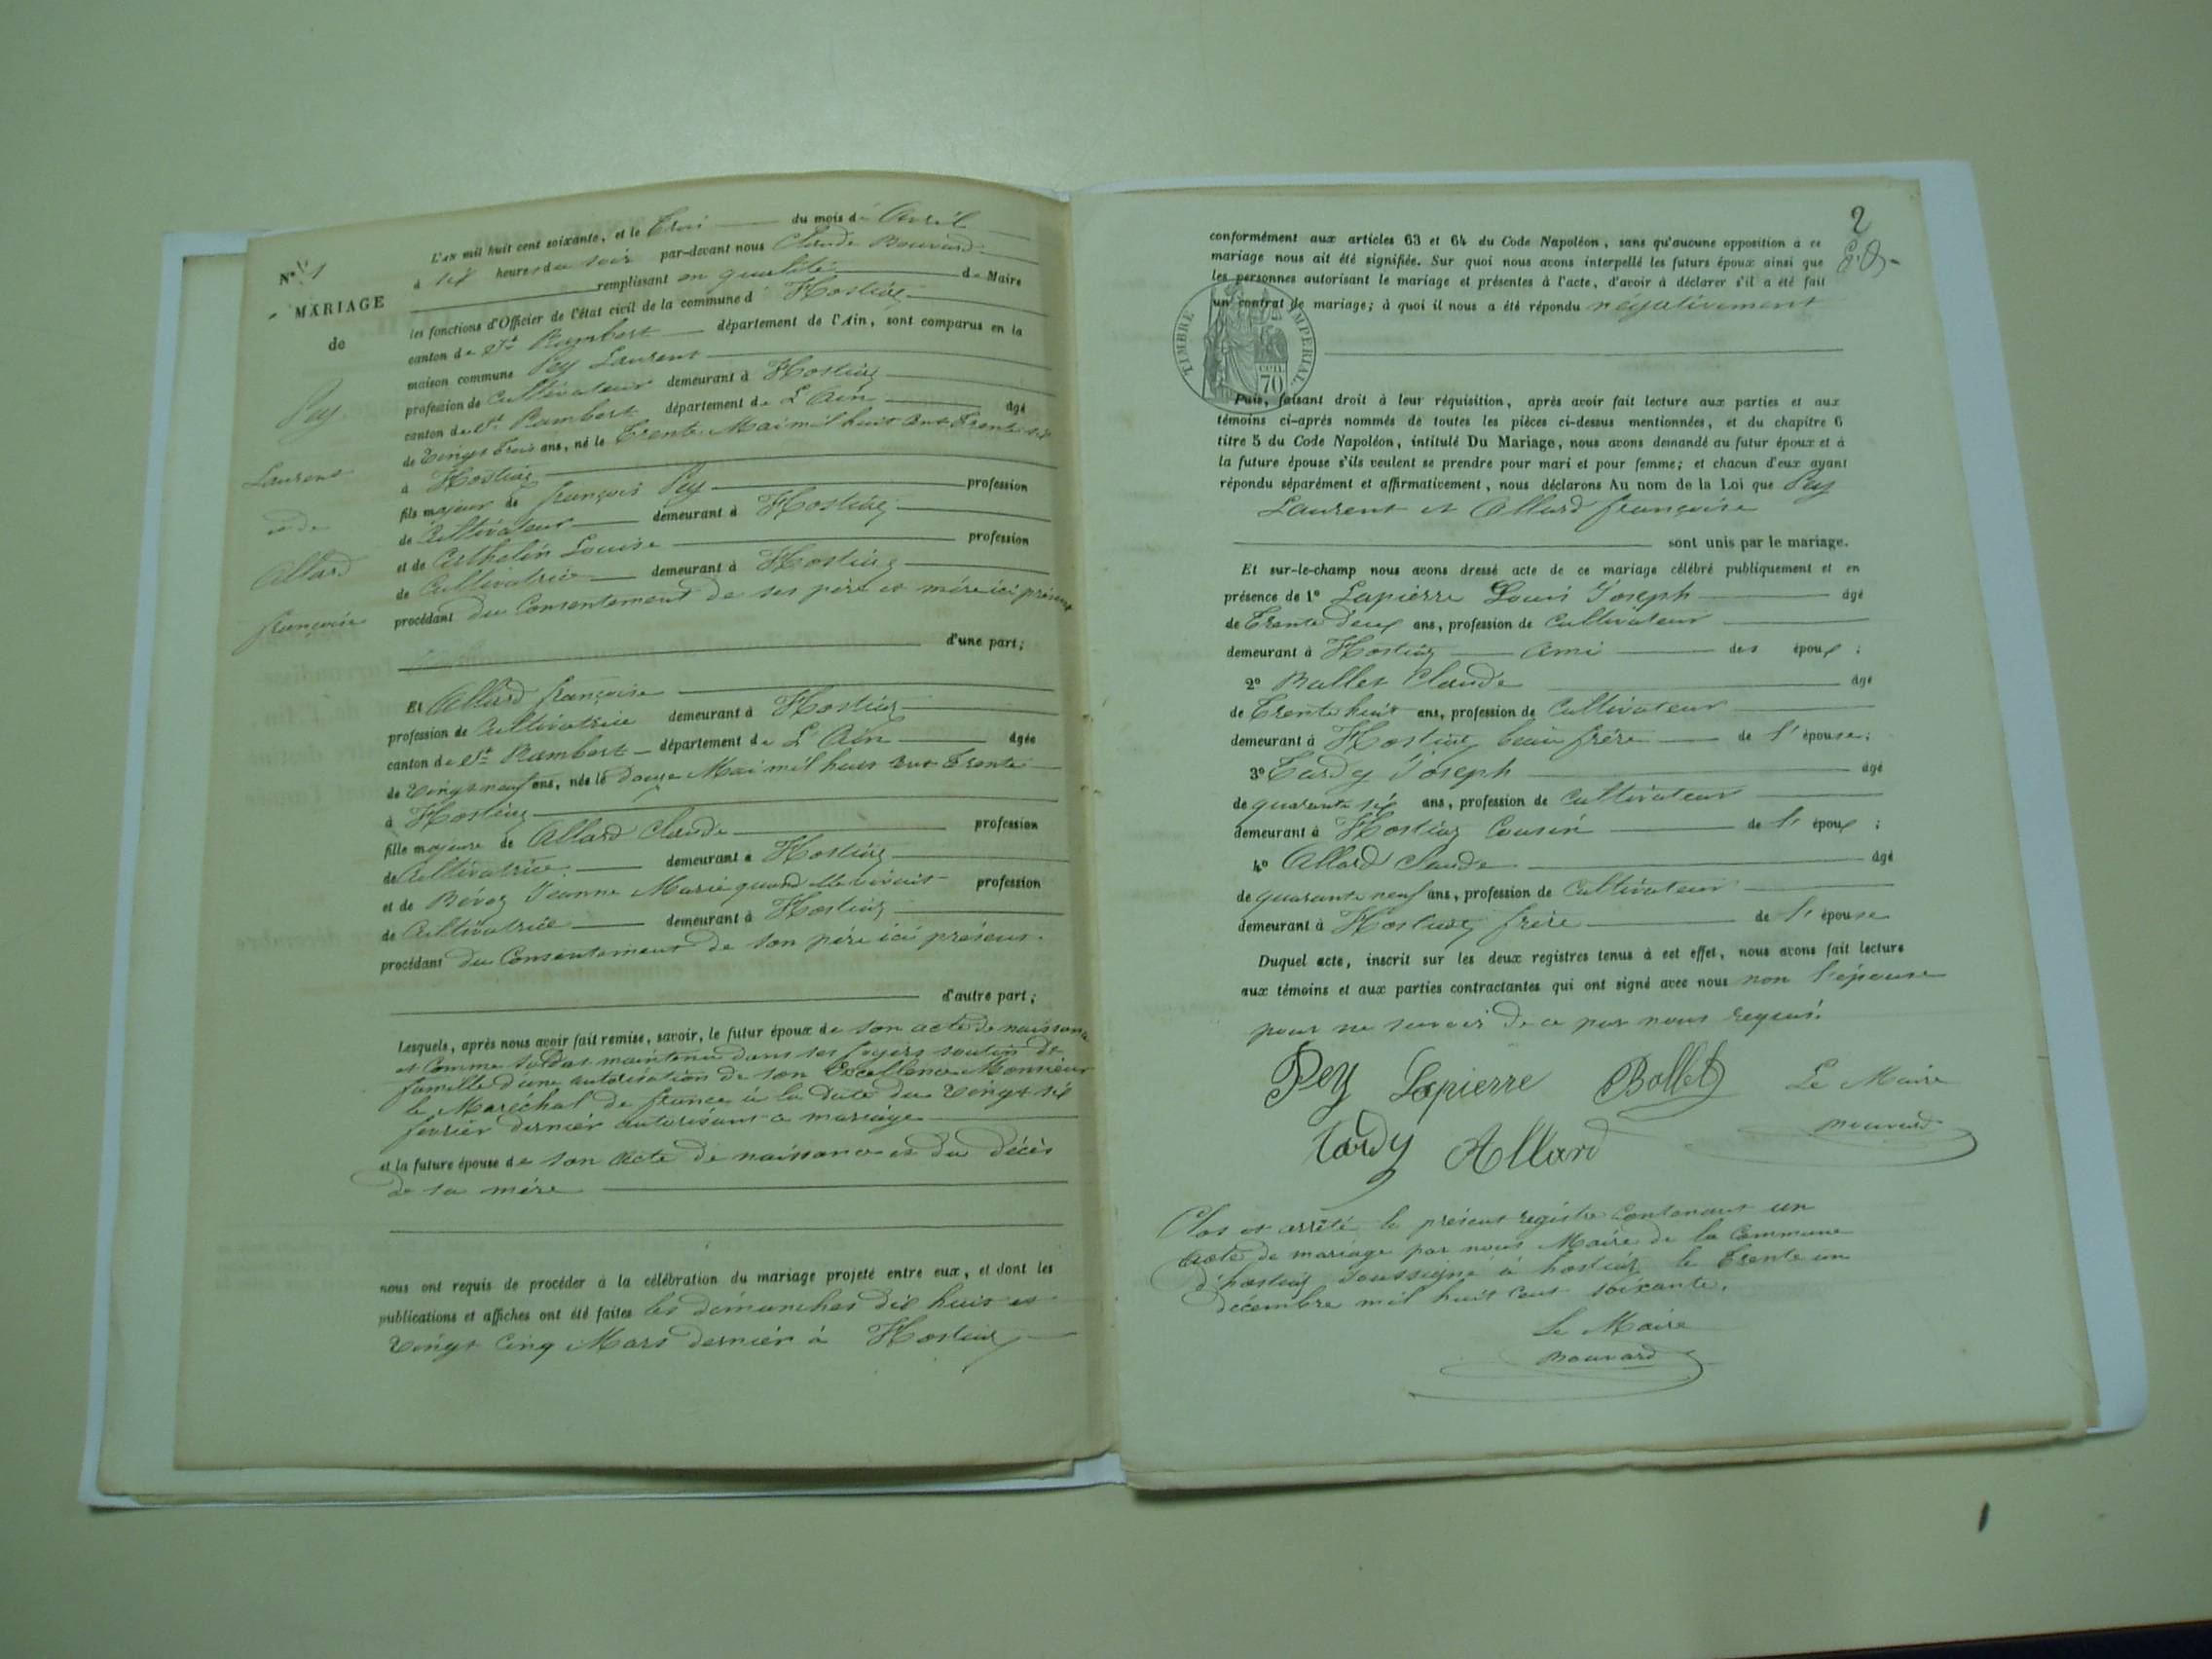 N° 1
MARIAGE
de
Pey
Laurent
et de
Allard
françoise
L'an mil huit cent soixante, et le trois du mois d'Avril
à six heures du soir par-devant nous Claude Bouvard
remplissant en qualité de Maire
les fonctions d'Officier de l'état civil de la commune d' Hostiaz
canton de St Rambert département de l'Ain, sont comparus en la
maison commune Pey Laurent
profession de Cultivateur demeurant à Hostiaz
canton de St Rambert département de L'Ain âgé
de Vingt trois ans, né le trente Mai mil huit cent trente six
à Hostiaz
fils majeur de françois Pey profession
de Cultivateur demeurant à Hostiaz
et de Louise profession
de Cultivatrice demeurant à Hostiaz
procédant du Consentement de ses père et mère ici présents
d'une part;
Et Allard françoise
profession de Cultivatrice demeurant à Hostiaz
canton de St Rambert département de L'Ain âgée
de Vingt neuf ans, née le douze Mai mil huit cent trente
à Hostiaz
fille majeure de Allard Claude profession
de Cultivatrice demeurant à Hostiaz
et de Jeanne Marie quand elle vivait profession
de Cultivatrice demeurant à Hostiaz
procédant du Consentement de son père ici présent
d'autre part;
Lesquels, après nous avoir fait remise, savoir, le futur époux de son acte de naissance
et Comme soldat maintenu dans ses foyers soutien de
famille d'une autorisation de son Excellence Monsieur
le Maréchal de france à la date du Vingt six
fevrier dernier autorisant ce mariage
et la future épouse de son acte de naissance et du décès
de sa mère
nous ont requis de procéder à la célébration du mariage projeté entre eux, et dont les
publications et affiches ont été faites les dimanches dix huit et
Vingt Cinq Mars dernier à Hostiaz
2
conformément aux articles 63 et 64 du Code Napoléon, sans qu'aucune opposition à ce
mariage nous ait été signifiée. Sur quoi nous avons interpellé les futurs époux ainsi que
les personnes autorisant le mariage et présentes à l'acte, d'avoir à déclarer s'il a été fait
un contrat de mariage; à quoi il nous a été répondu négativement
TIMBRE IMPERIAL
70
Puis, faisant droit à leur réquisition, après avoir fait lecture aux parties et aux
témoins ci-après nommés de toutes les pièces ci-dessus mentionnées, et du chapitre 6
titre 5 du Code Napoléon, intitulé Du Mariage, nous avons demandé au futur époux et à
la future épouse s'ils veulent se prendre pour mari et pour femme; et chacun d'eux ayant
répondu séparément et affirmativement, nous déclarons Au nom de la Loi que Pey
Laurent et Allard françoise
sont unis par le mariage.
Et sur-le-champ nous avons dressé acte de ce mariage célébré publiquement et en
présence de 1° Lapierre Louis Joseph âgé
de Trente deux ans, profession de Cultivateur
demeurant à Hostiaz ami des époux;
2° Ballet Claude âgé
de Trente huit ans, profession de Cultivateur
demeurant à Hostiaz beau frère de l'épouse;
3° Tardy Joseph âgé
de quarante six ans, profession de Cultivateur
demeurant à Hostiaz Cousin de l'époux;
4° Allard Claude âgé
de quarante neuf ans, profession de Cultivateur
demeurant à Hostiaz frère de l'épouse
Duquel acte, inscrit sur les deux registres tenus à cet effet, nous avons fait lecture
aux témoins et aux parties contractantes qui ont signé avec nous non l'épouse
pour ne savoir de ce par nous requis.
Pey Lapierre Ballet Le Maire
Tardy Allard Bouvard
Clos et arrêté le présent registre Contenant un
acte de mariage par nous Maire de la Commune
d'hostiaz soussigné à hostiaz le trente un
décembre mil huit cent soixante.
Le Maire
Bouvard